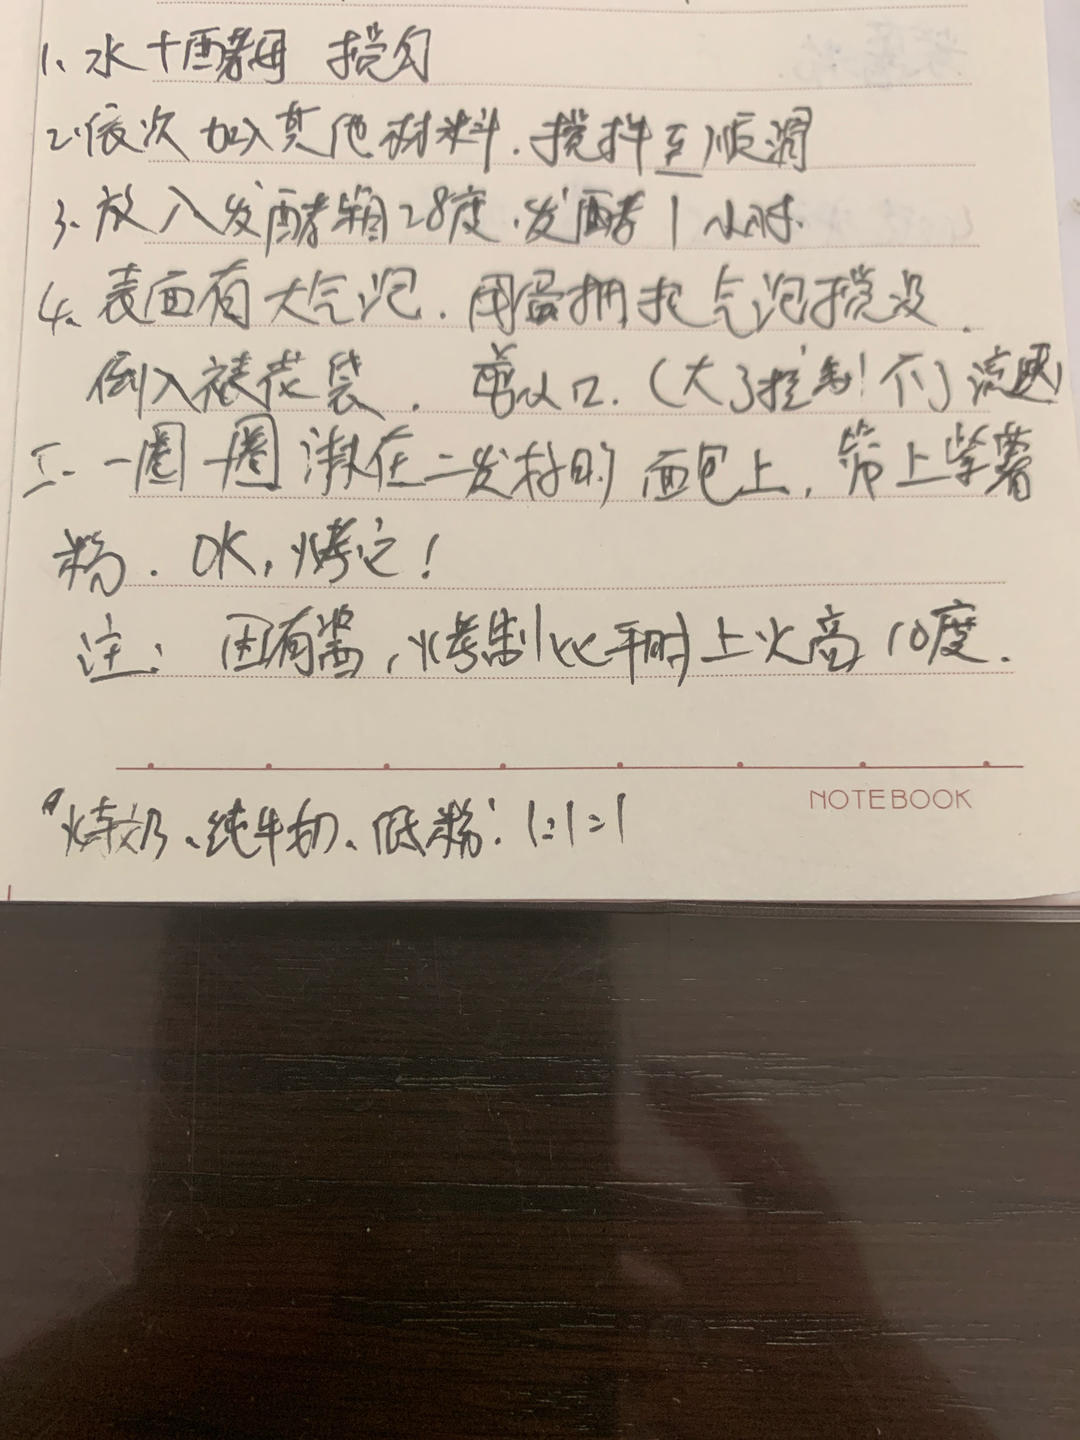 1、水+酵母 搅匀
2.依次加入其他材料.搅拌至顺滑
3.放入发酵箱28度.发酵1小时.
4.表面有大气泡.用蛋抽把气泡搅没.
倒入裱花袋.剪小口.(大了控制不了流速)
5.一圈一圈淋在二发好的面包上,筛上紫薯
粉.OK,烤它!
注:因有酱,烤制比平时上火高10度.
NOTEBOOK
纯牛奶、低粉:1:1=1